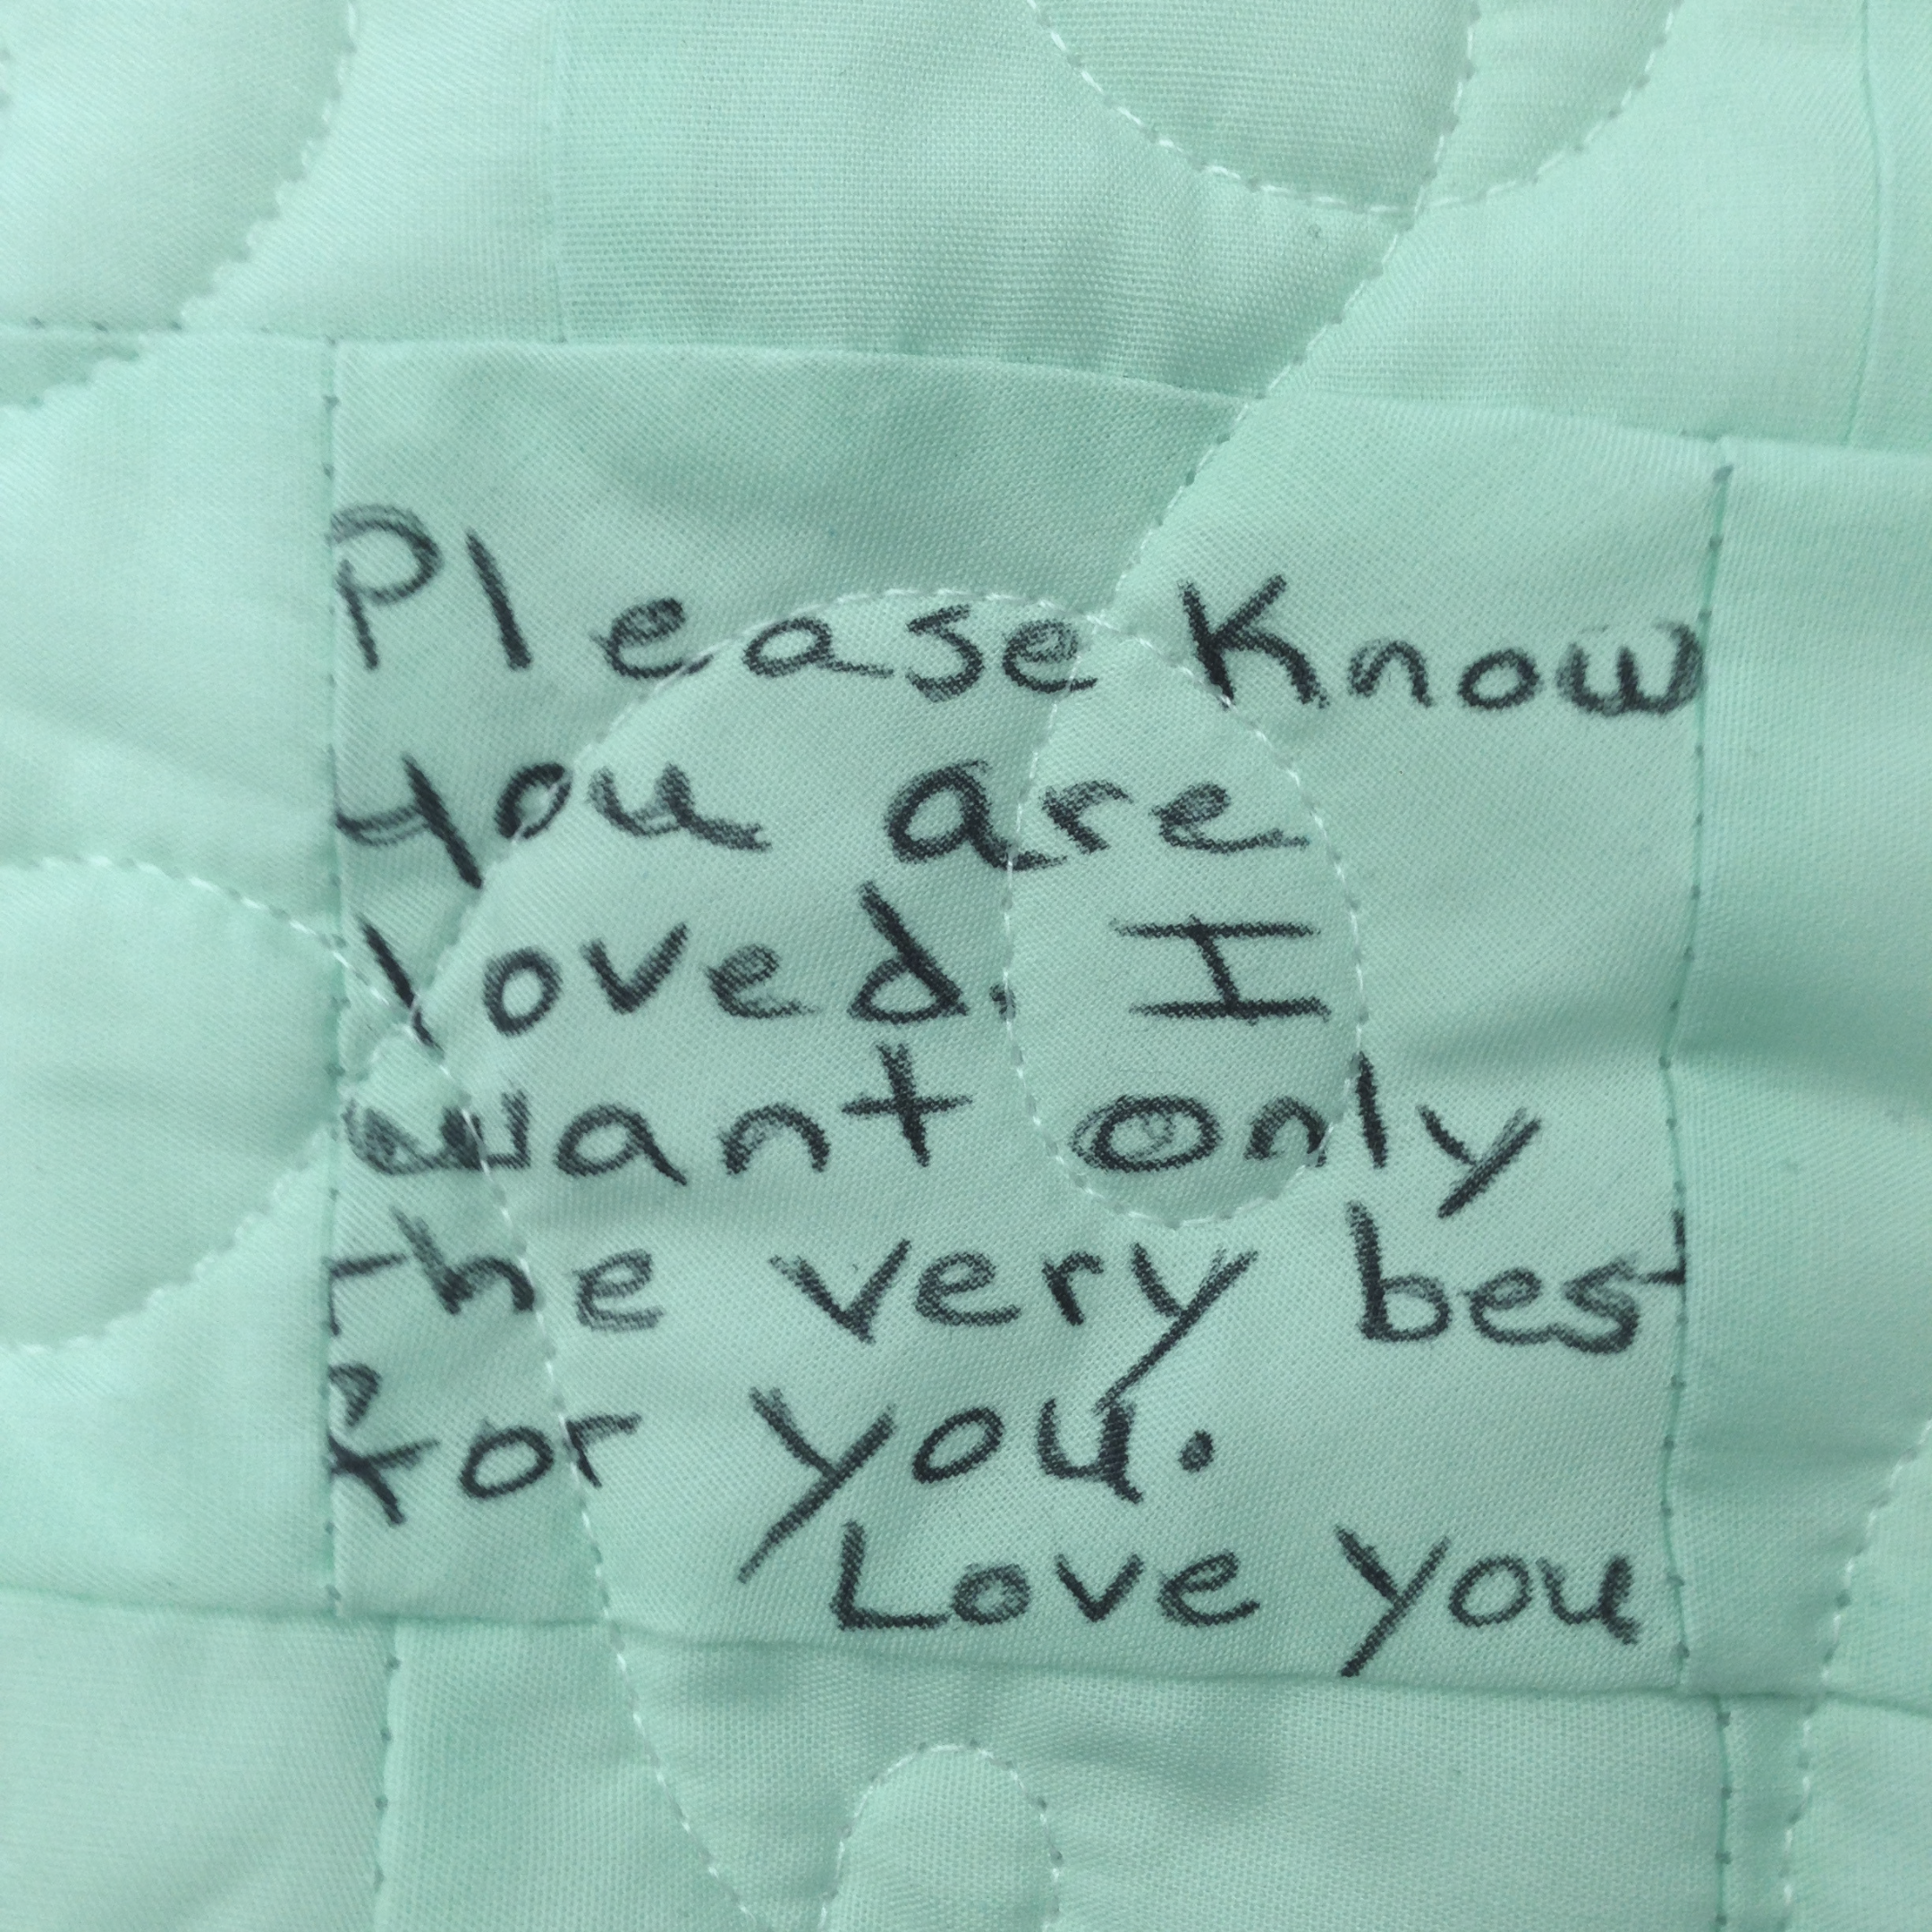 Please Know
you are
loved. I
want only
the very best
for you.
Love you